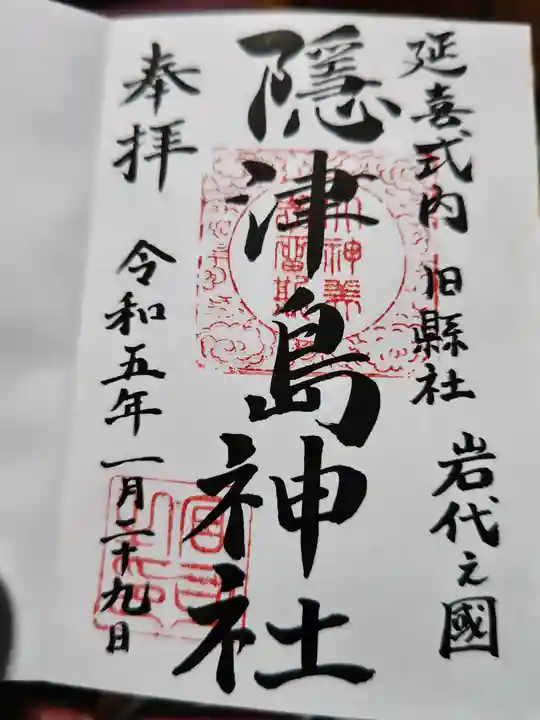 延喜式内 旧縣社
岩代之國
隱津島神社
奉拝
令和五年一月二十九日